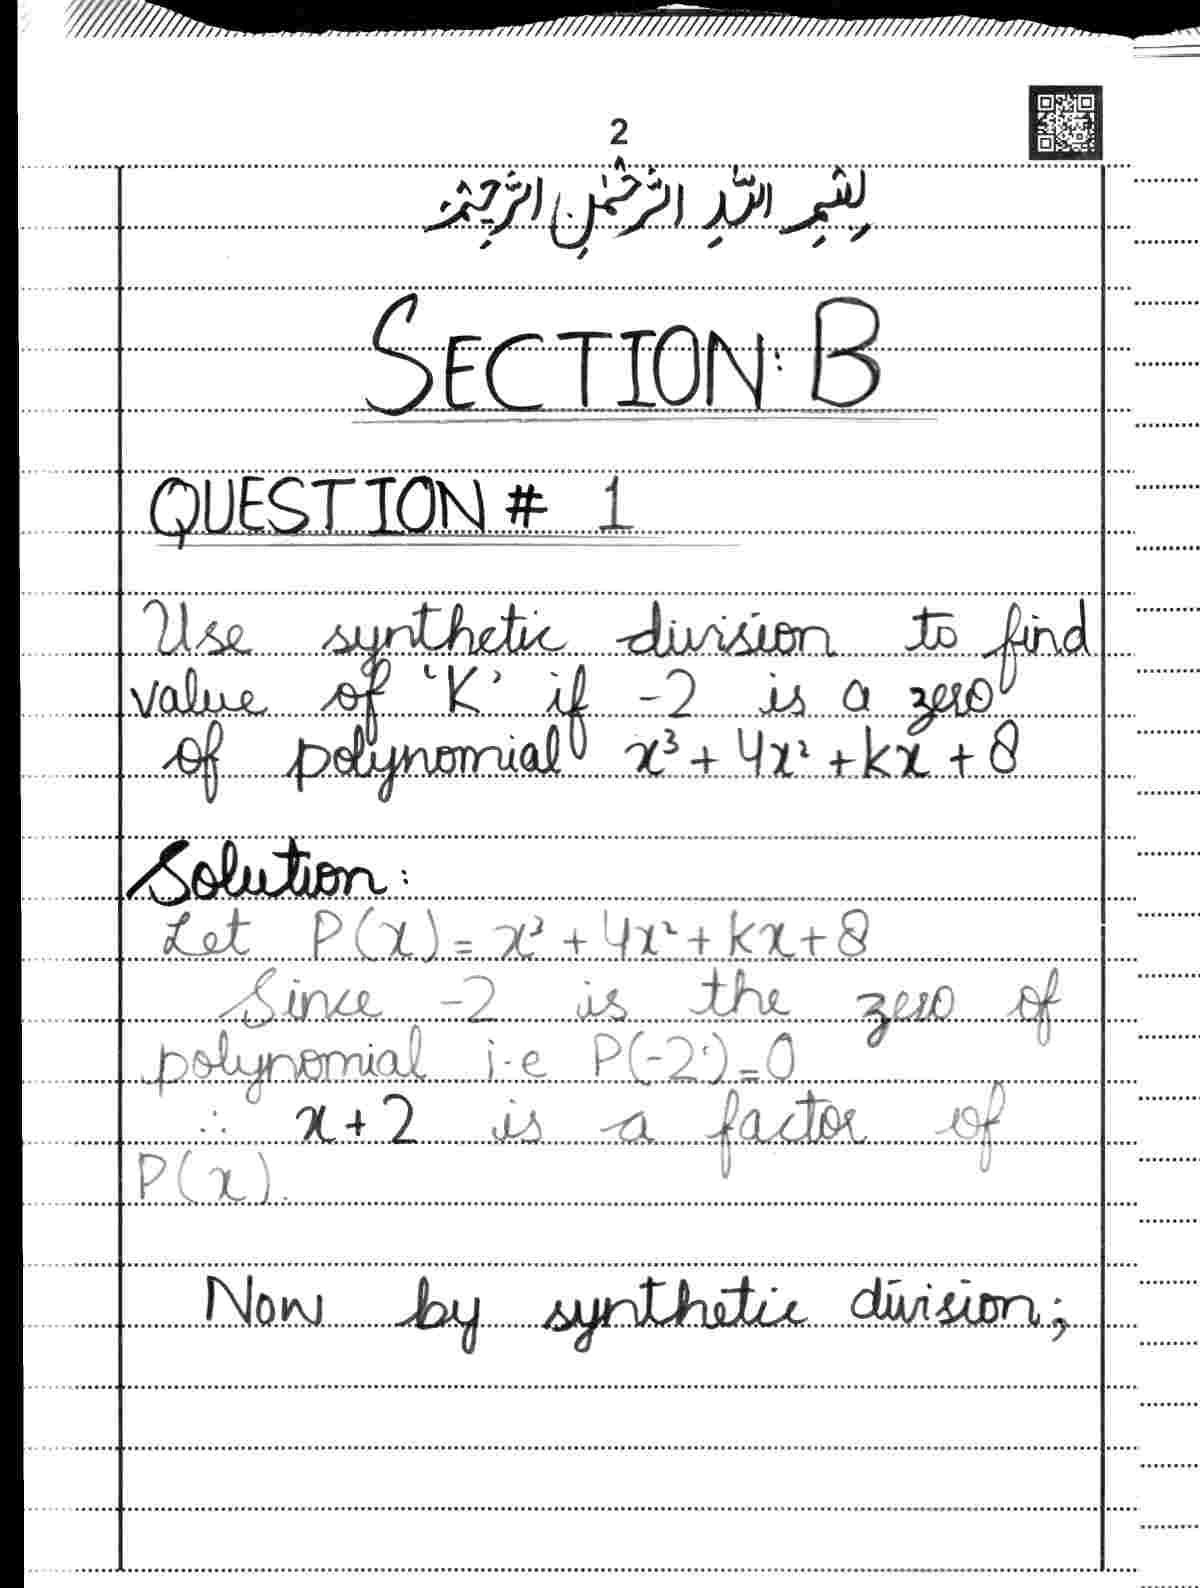 2
بِسْمِ اللهِ الرَّحْمٰنِ الرَّحِيْمِ
SECTION: B
QUESTION # 1
Use synthetic division to find
value of 'K' if -2 is a zero
of polynomial x³ + 4x² + kx + 8
Solution:
Let P(x) = x³ + 4x² + kx + 8
Since -2 is the zero of
polynomial i-e P(-2) = 0
∴ x + 2 is a factor of
P(x).
Now by synthetic division;